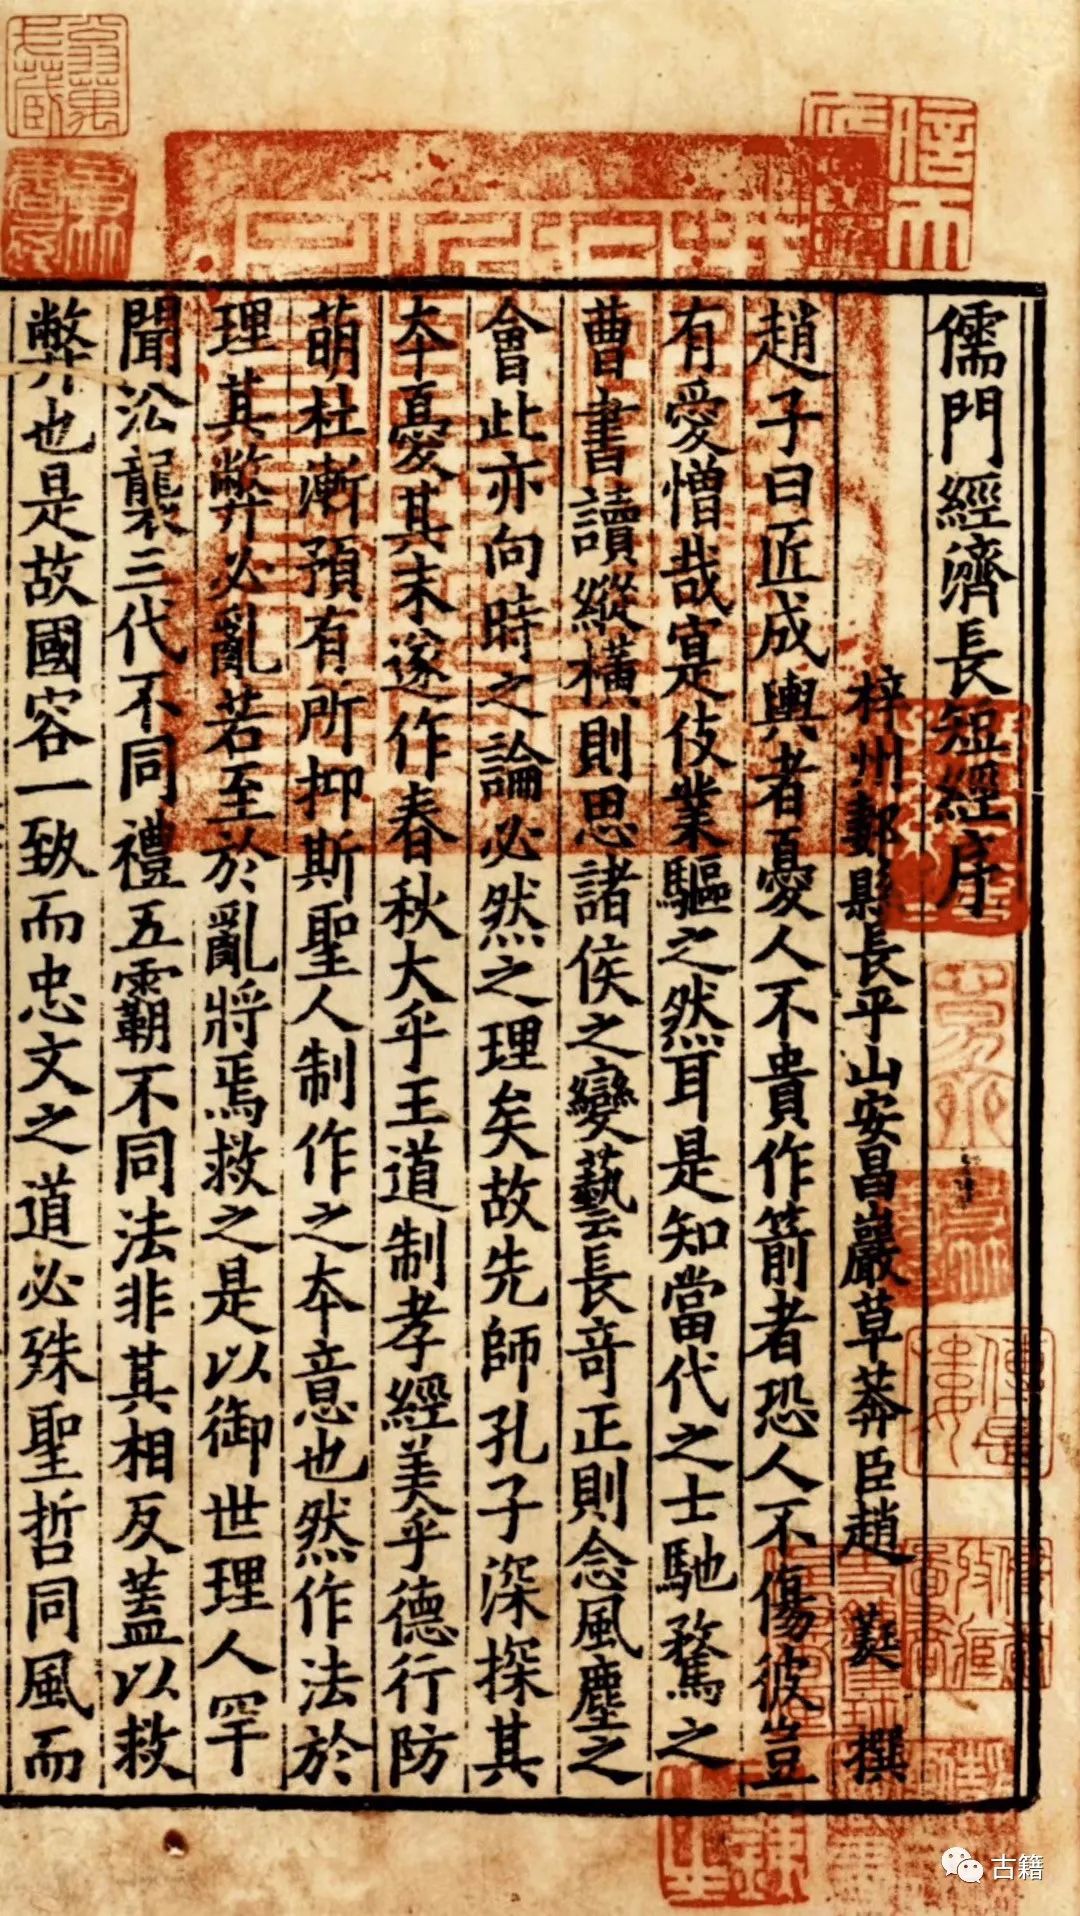 儒門經濟長短經序
梓州郪縣長平山安昌巖草莽臣趙蕤撰
趙子曰匠成輿者憂人不貴作箭者恐人不傷彼豈
有愛憎哉寔是伎業驅之然耳是知當代之士馳騖之
曹書讀縱橫則思諸侯之變藝長奇正則念風塵之
會此亦向時之論必然之理矣故先師孔子深探其
本憂其末遂作春秋大乎王道制孝經美乎德行防
萌杜漸預有所抑斯聖人制作之本意也然作法於
理其弊必亂若至於亂將焉救之是以御世理人罕
聞沿襲三代不同禮五霸不同法非其相反蓋以救
弊也是故國容一致而忠文之道必殊聖哲同風而
古籍